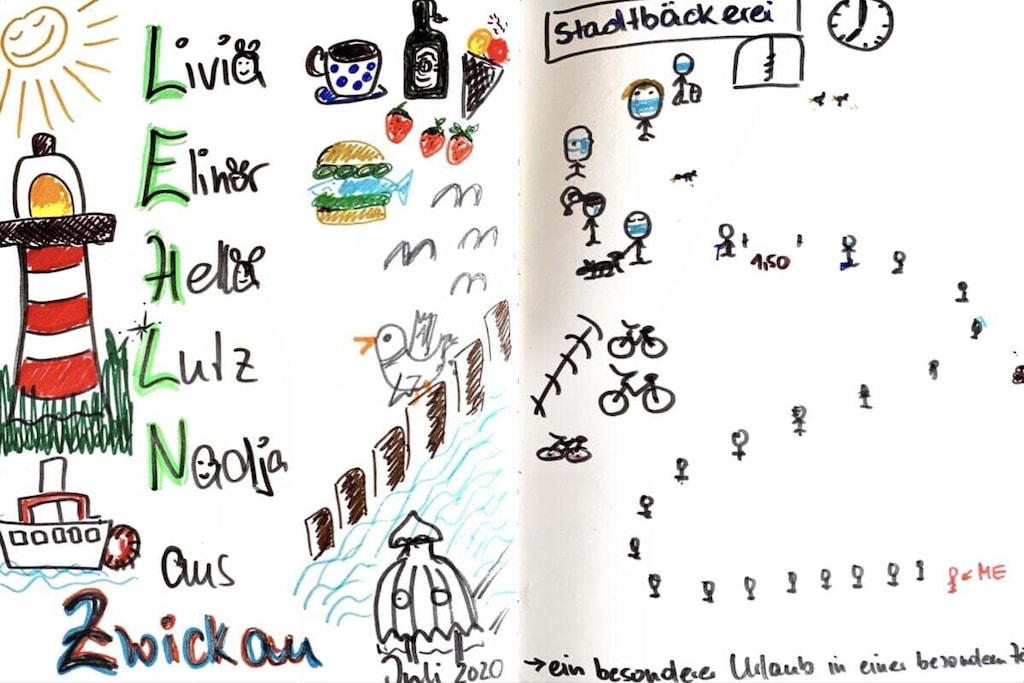 Livia
Elinor
Hela
Lutz
Nadja
aus
Zwickau
Juli 2020
Stadtbäckerei
1,50
ME
→ein besonderer Urlaub in einer besondern